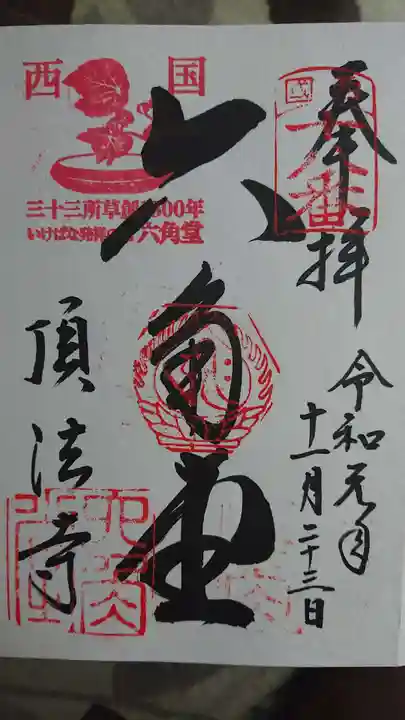 奉拝
令和元年
十一月二十三日
六角堂
西国
三十三所草創1300年
いけばな発祥の地 六角堂
頂法寺